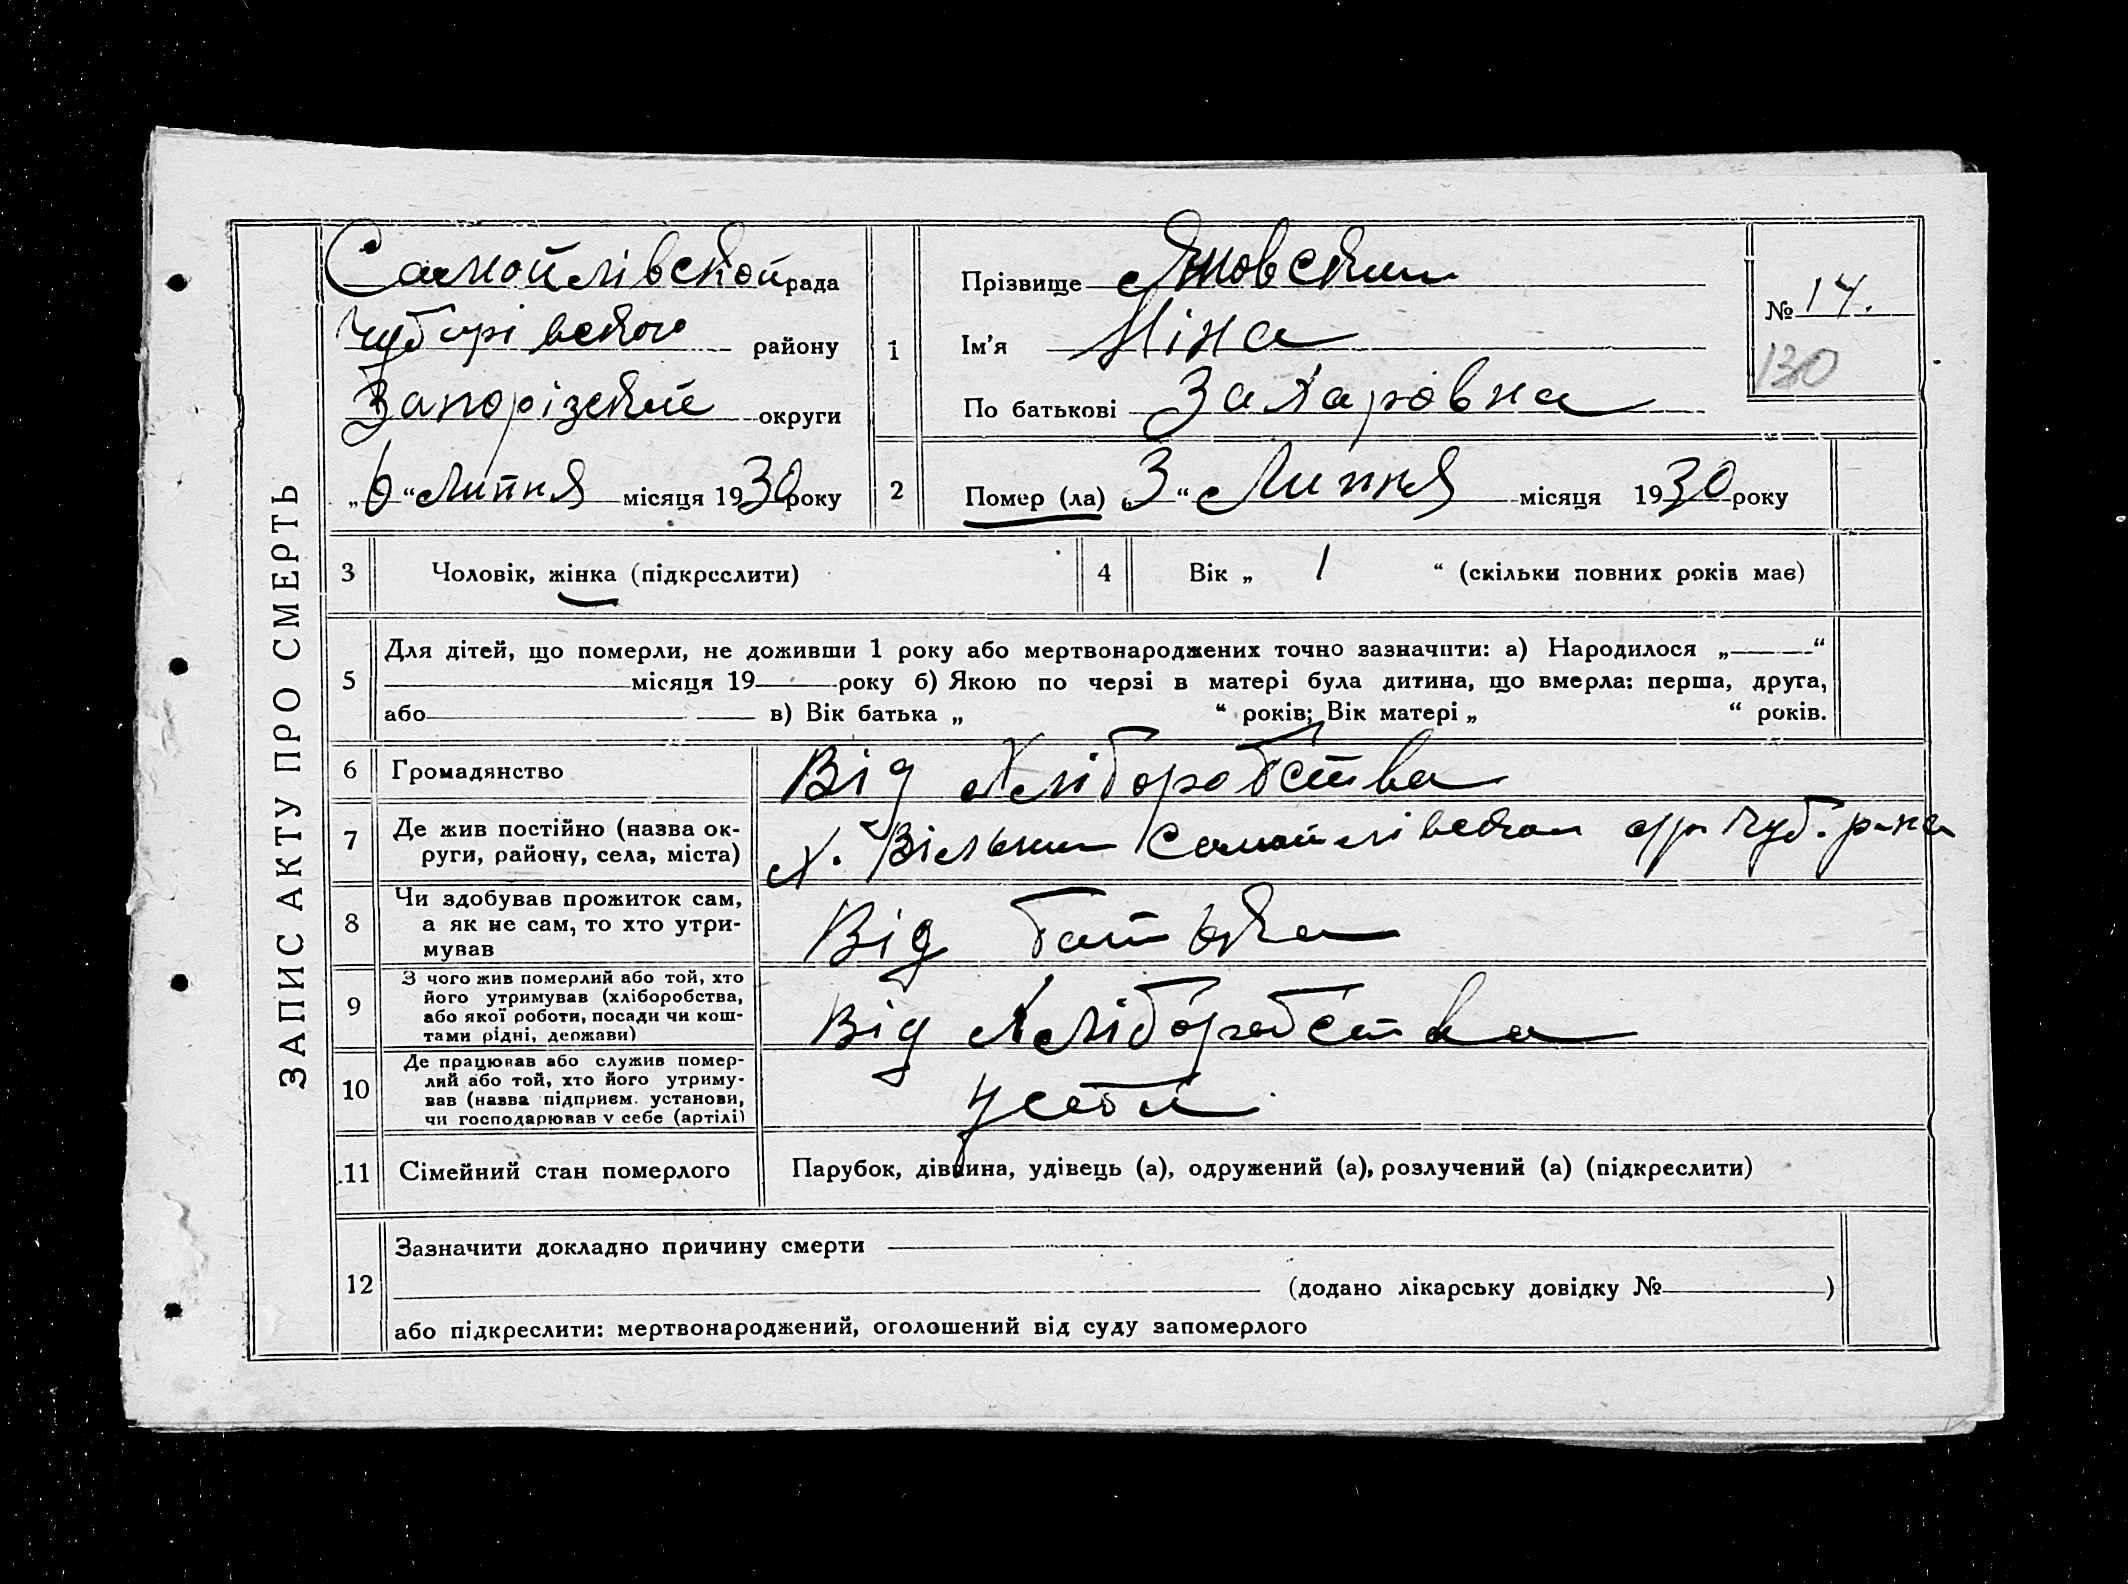 ЗАПИС АКТУ ПРО СМЕРТЬ
Самойлівской рада
Чубарівського району
Запорізькой округи
„6“ Липня місяця 1930 року
1
Прізвище Яновский
Ім'я Ніна
По батькові Захаровна
№ 14.
130
2
Помер (ла) „3“ Липня місяця 1930 року
3 Чоловік, жінка (підкреслити)
4 Вік „ 1 “ (скільки повних років має)
5
Для дітей, що померли, не доживши 1 року або мертвонароджених точно зазначити: а) Народилося „ “
місяця 19 року б) Якою по черзі в матері була дитина, що вмерла: перша, друга,
або в) Вік батька „ “ років; Вік матері „ “ років.
6 Громадянство Від Хліборобства
7 Де жив постійно (назва ок-
руги, району, села, міста)
х. Вільний Самойлівской с/р Чуб. р-на
8 Чи здобував прожиток сам,
а як не сам, то хто утри-
мував
Від батька
9 З чого жив померлий або той, хто
його утримував (хліборобства,
або якої роботи, посади чи кош-
тами рідні, держави)
Від Хліборобства
10 Де працював або служив помер-
лий або той, хто його утриму-
вав (назва підприєм. установи,
чи господарював у себе (артілі)
у себе
11 Сімейний стан померлого Парубок, дівчина, удівець (а), одружений (а), розлучений (а) (підкреслити)
12
Зазначити докладно причину смерти
(додано лікарську довідку № )
або підкреслити: мертвонароджений, оголошений від суду запомерлого